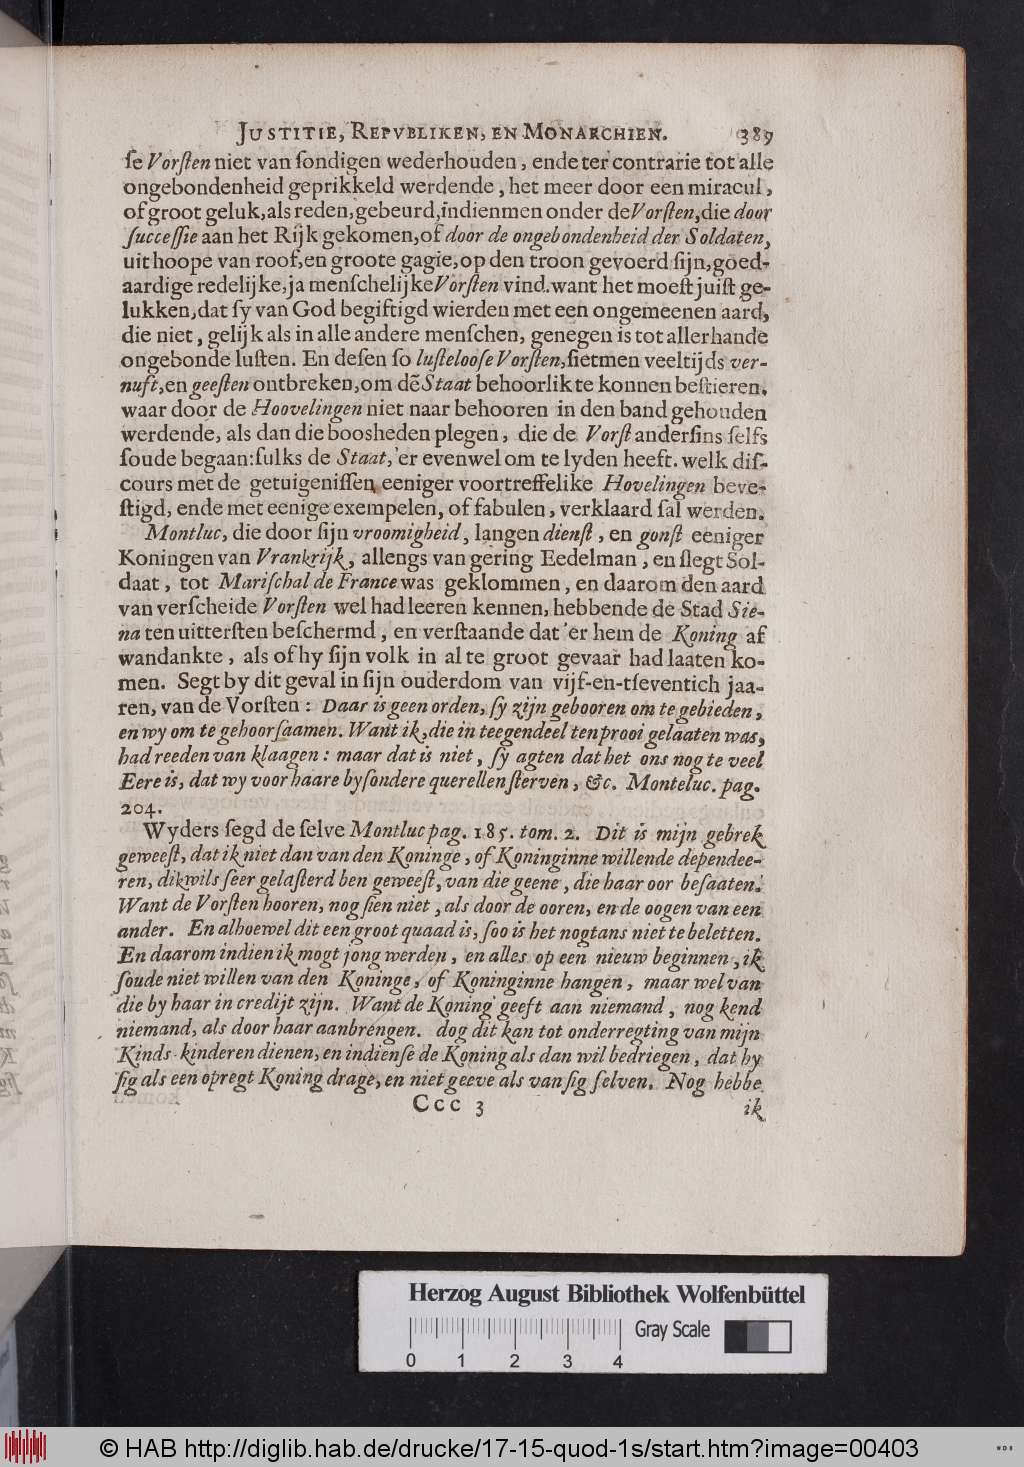 JUSTITIE, REPVBLIKEN, EN MONARCHIEN. 389
ſe Vorſten niet van ſondigen wederhouden, ende ter contrarie tot alle
ongebondenheid geprikkeld werdende, het meer door een miracul,
of groot geluk, als reden, gebeurd, indienmen onder de Vorſten, die door
ſucceſſie aan het Rijk gekomen, of door de ongebondenheid der Soldaten,
uit hoope van roof, en groote gagie, op den troon gevoerd ſijn, goed-
aardige redelijke, ja menſchelijke Vorſten vind. want het moeſt juiſt ge-
lukken, dat ſy van God begiftigd wierden met een ongemeenen aard,
die niet, gelijk als in alle andere menſchen, genegen is tot allerhande
ongebonde luſten. En deſen ſo luſtelooſe Vorſten, ſietmen veeltijds ver-
nuft, en geeſten ontbreken, om dē Staat behoorlik te konnen beſtieren.
waar door de Hoovelingen niet naar behooren in den band gehouden
werdende, als dan die boosheden plegen, die de Vorſt anderſins ſelfs
ſoude begaan: ſulks de Staat, 'er evenwel om te lyden heeft. welk diſ-
cours met de getuigeniſſen eeniger voortreffelike Hovelingen beve-
ſtigd, ende met eenige exempelen, of fabulen, verklaard ſal werden.
Montluc, die door ſijn vroomigheid, langen dienſt, en gonſt eeniger
Koningen van Vrankrijk, allengs van gering Eedelman, en ſlegt Sol-
daat, tot Mariſchal de France was geklommen, en daarom den aard
van verſcheide Vorſten wel had leeren kennen, hebbende de Stad Sie-
na ten uitterſten beſchermd, en verſtaande dat 'er hem de Koning af
wandankte, als of hy ſijn volk in al te groot gevaar had laaten ko-
men. Segt by dit geval in ſijn ouderdom van vijf-en-tſeventich jaa-
ren, van de Vorſten: Daar is geen orden, ſy zijn gebooren om te gebieden,
en wy om te gehoorſaamen. Want ik, die in teegendeel ten prooi gelaaten was,
had reeden van klaagen: maar dat is niet, ſy agten dat het ons nog te veel
Eere is, dat wy voor haare byſondere querellen ſterven, &c. Monteluc. pag.
204.
Wyders ſegd de ſelve Montluc pag. 185. tom. 2. Dit is mijn gebrek
geweeſt, dat ik niet dan van den Koninge, of Koninginne willende dependee-
ren, dikwils ſeer gelaſterd ben geweeſt, van die geene, die haar oor beſaaten.
Want de Vorſten hooren, nog ſien niet, als door de ooren, en de oogen van een
ander. En alhoewel dit een groot quaad is, ſoo is het nogtans niet te beletten.
En daarom indien ik mogt jong werden, en alles op een nieuw beginnen, ik
ſoude niet willen van den Koninge, of Koninginne hangen, maar wel van
die by haar in credijt zijn. Want de Koning geeft aan niemand, nog kend
niemand, als door haar aanbrengen. dog dit kan tot onderregting van mijn
Kinds-kinderen dienen, en indienſe de Koning als dan wil bedriegen, dat hy
ſig als een opregt Koning drage, en niet geeve als van ſig ſelven. Nog hebbe
Ccc 3 ik
Herzog August Bibliothek Wolfenbüttel
Gray Scale
0 1 2 3 4
© HAB http://diglib.hab.de/drucke/17-15-quod-1s/start.htm?image=00403